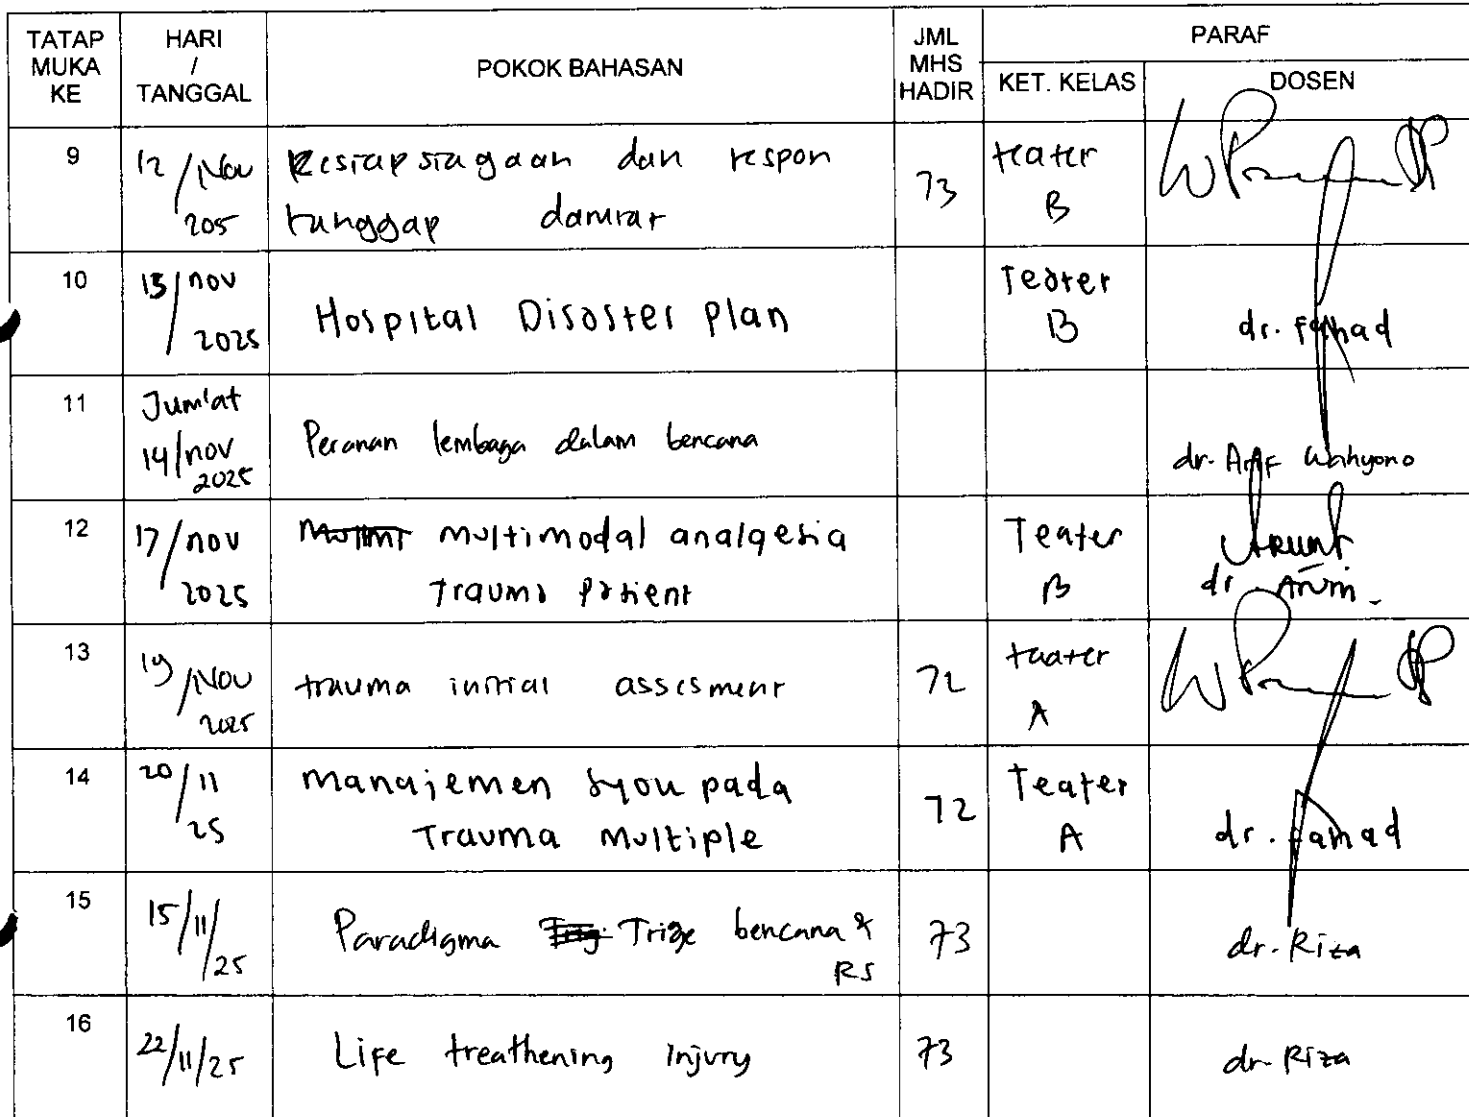 TATAP MUKA KE | HARI / TANGGAL | POKOK BAHASAN | JML MHS HADIR | PARAF
KET. KELAS | DOSEN
9 | 12/Nov 205 | Kesiapsiagaan dan respon tanggap darurat | 73 | teater B
10 | 13/nov 2025 | Hospital Disaster Plan | Teater B | dr. Fahad
11 | Jum'at 14/nov 2025 | Peranan lembaga dalam bencana | dr. Arif Wahyono
12 | 17/nov 2025 | multimodal analgesia Trauma Patient | Teater B | dr Arum
13 | 19/Nov 2025 | trauma initial assesment | 72 | teater A
14 | 20/11 25 | Manajemen syou pada Trauma Multiple | 72 | Teater A | dr. Fahad
15 | 15/11/25 | Paradigma Trige bencana & RS | 73 | dr. Riza
16 | 22/11/25 | Life treathening Injury | 73 | dr. Riza